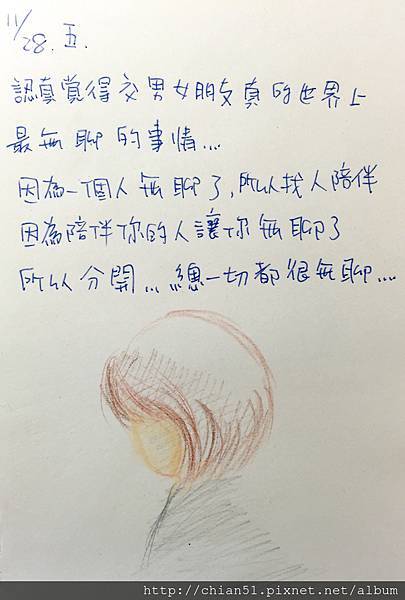 11/28.五.
認真覺得交男女朋友真的世界上
最無聊的事情...
因為一個人無聊了,所以找人陪伴
因為陪伴你的人讓你無聊了
所以分開...總一切都很無聊....
http://chian51.pixnet.net/album